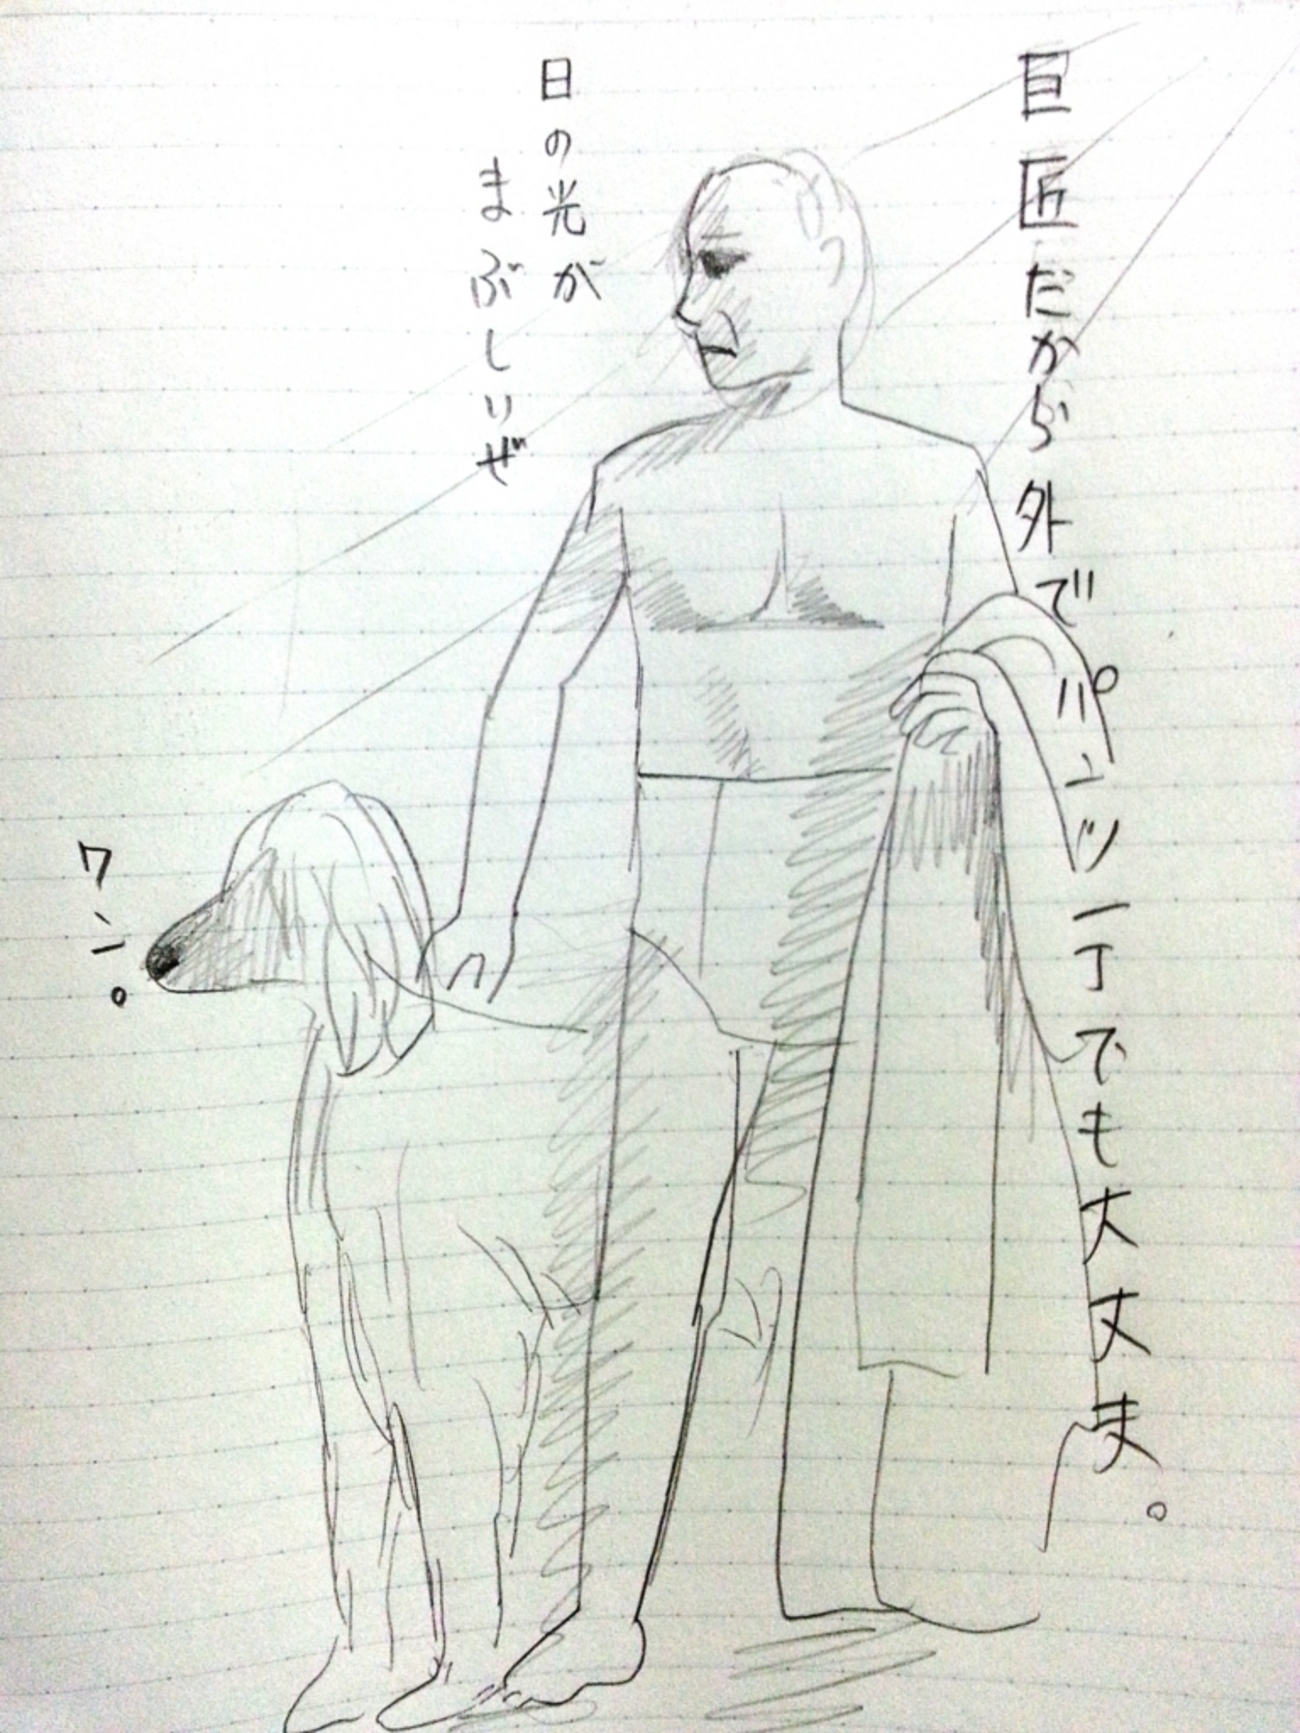 巨匠だから外でパンツ一丁でも大丈夫。
日の光が
まぶしいぜ
ワン。